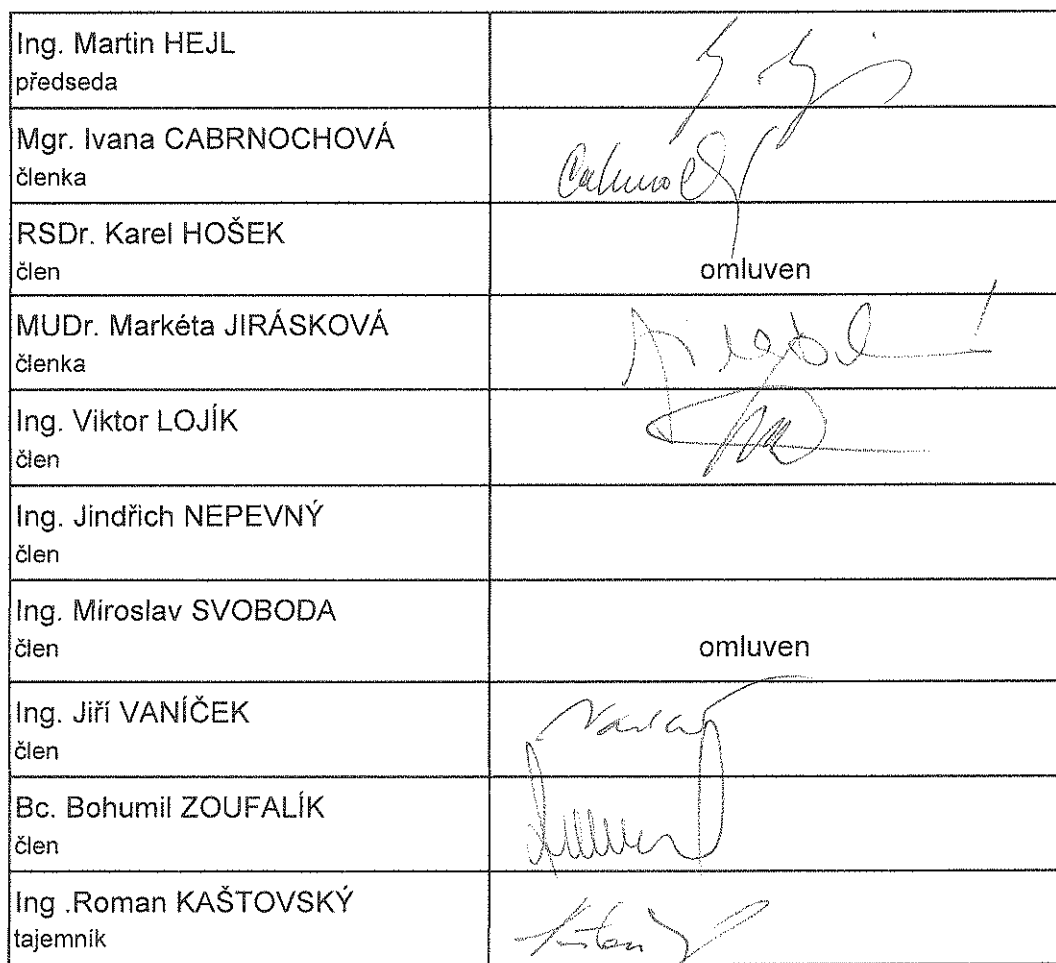 Ing. Martin HEJL
předseda
Mgr. Ivana CABRNOCHOVÁ
členka
RSDr. Karel HOŠEK
člen
omluven
MUDr. Markéta JIRÁSKOVÁ
členka
Ing. Viktor LOJÍK
člen
Ing. Jindřich NEPEVNÝ
člen
Ing. Miroslav SVOBODA
člen
omluven
Ing. Jiří VANÍČEK
člen
Bc. Bohumil ZOUFALÍK
člen
Ing .Roman KAŠTOVSKÝ
tajemník